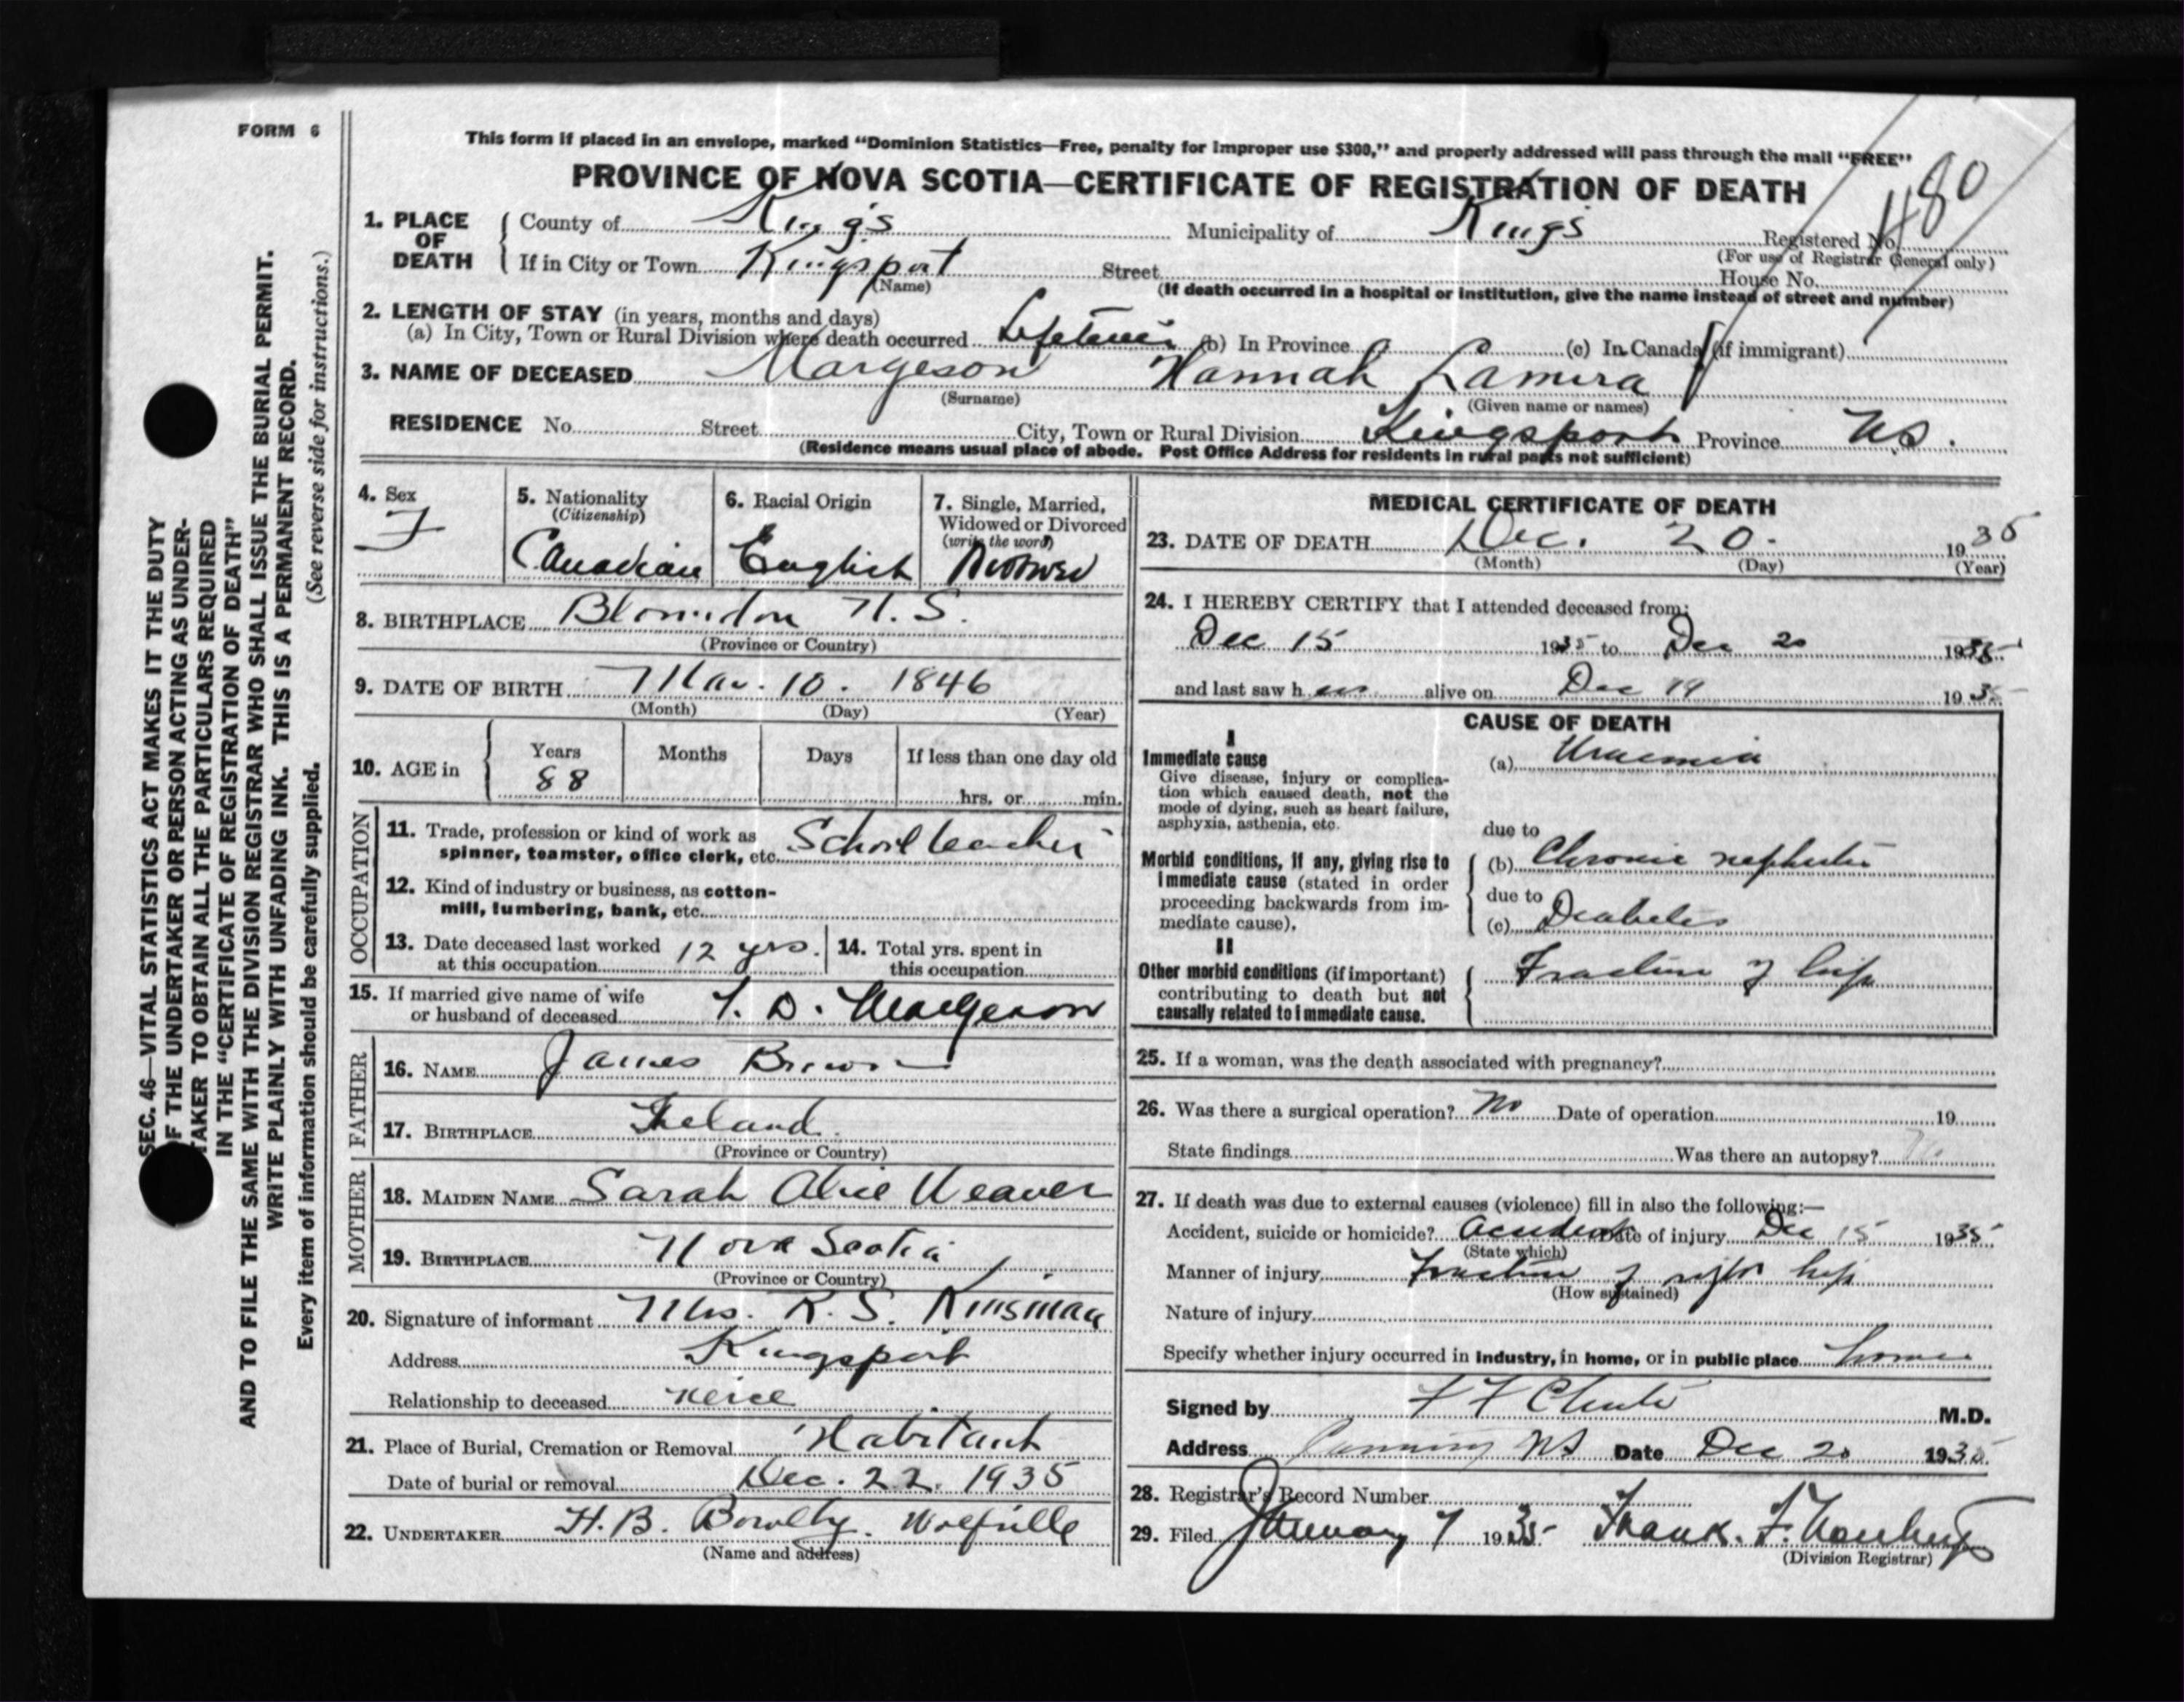 FORM 6
This form if placed in an envelope, marked “Dominion Statistics—Free, penalty for improper use $300,” and properly addressed will pass through the mail “FREE”
PROVINCE OF NOVA SCOTIA—CERTIFICATE OF REGISTRATION OF DEATH
480
1. PLACE OF DEATH { County of Kings Municipality of Kings Registered No.
(For use of Registrar General only)
If in City or Town Kingsport Street House No.
(Name) (If death occurred in a hospital or institution, give the name instead of street and number)
2. LENGTH OF STAY (in years, months and days)
(a) In City, Town or Rural Division where death occurred Lifetime (b) In Province (c) In Canada (if immigrant)
3. NAME OF DECEASED Margeson Hannah Lamira
(Surname) (Given name or names)
RESIDENCE No. Street City, Town or Rural Division Kingsport Province N.S.
(Residence means usual place of abode. Post Office Address for residents in rural parts not sufficient)
4. Sex
F
5. Nationality
(Citizenship)
Canadian
6. Racial Origin
English
7. Single, Married,
Widowed or Divorced
(write the word)
Widowed
8. BIRTHPLACE Blomidon N.S.
(Province or Country)
9. DATE OF BIRTH Mar. 10. 1846
(Month) (Day) (Year)
10. AGE in { Years Months Days If less than one day old
88 hrs. or min.
OCCUPATION
11. Trade, profession or kind of work as
spinner, teamster, office clerk, etc. School teacher
12. Kind of industry or business, as cotton-
mill, lumbering, bank, etc.
13. Date deceased last worked
at this occupation 12 yrs.
14. Total yrs. spent in
this occupation
15. If married give name of wife
or husband of deceased D. Margeson
FATHER
16. NAME James Brown
17. BIRTHPLACE Ireland
(Province or Country)
MOTHER
18. MAIDEN NAME Sarah Alice Weaver
19. BIRTHPLACE Nova Scotia
(Province or Country)
20. Signature of informant Mrs. R. S. Kinsman
Address Kingsport
Relationship to deceased neice
21. Place of Burial, Cremation or Removal Habitant
Date of burial or removal Dec. 22. 1935
22. UNDERTAKER H. B. Bowlby. Wolfville
(Name and address)
MEDICAL CERTIFICATE OF DEATH
23. DATE OF DEATH Dec. 20. 1935
(Month) (Day) (Year)
24. I HEREBY CERTIFY that I attended deceased from:
Dec 15 1935 to Dec 20 1935
and last saw her alive on Dec 19 1935
CAUSE OF DEATH
I
Immediate cause
Give disease, injury or complica-
tion which caused death, not the
mode of dying, such as heart failure,
asphyxia, asthenia, etc.
(a) Uraemia
due to
Morbid conditions, if any, giving rise to
immediate cause (stated in order
proceeding backwards from im-
mediate cause).
(b) Chronic nephritis
due to
(c) Diabetes
II
Other morbid conditions (if important)
contributing to death but not
causally related to immediate cause.
Fracture of hip
25. If a woman, was the death associated with pregnancy?
26. Was there a surgical operation? No Date of operation 19
State findings Was there an autopsy? No
27. If death was due to external causes (violence) fill in also the following:—
Accident, suicide or homicide? Accident Date of injury Dec 15 1935
(State which)
Manner of injury Fracture of right hip
(How sustained)
Nature of injury
Specify whether injury occurred in industry, in home, or in public place home
Signed by F F Chute M.D.
Address Canning NS Date Dec 20 1935
28. Registrar's Record Number
29. Filed January 7 1935 Frank. F.
(Division Registrar)
SEC. 46—VITAL STATISTICS ACT MAKES IT THE DUTY
OF THE UNDERTAKER OR PERSON ACTING AS UNDER-
TAKER TO OBTAIN ALL THE PARTICULARS REQUIRED
IN THE “CERTIFICATE OF REGISTRATION OF DEATH”
AND TO FILE THE SAME WITH THE DIVISION REGISTRAR WHO SHALL ISSUE THE BURIAL PERMIT.
WRITE PLAINLY WITH UNFADING INK. THIS IS A PERMANENT RECORD.
Every item of information should be carefully supplied. (See reverse side for instructions.)